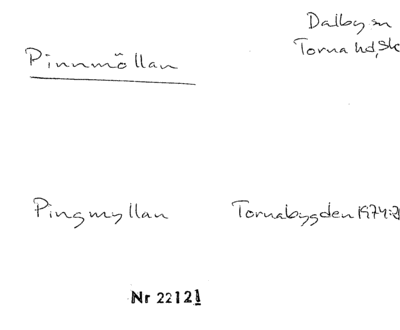 Pinnmöllan
Dalby sn
Torna hd, Sk
Pingmyllan
Tornabygden 1974:2
Nr 22121